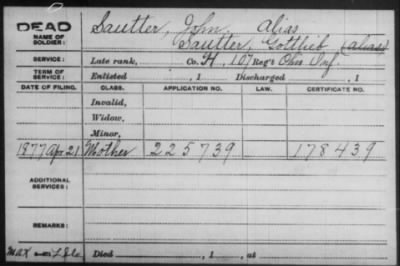 DEAD
NAME OF SOLDIER: Sautter, John, alias
Sautter, Gottlieb (alias)
SERVICE: Late rank, Co. H, 107 Reg't Ohio Inf.
TERM OF SERVICE: Enlisted , 1 Discharged , 1
DATE OF FILING. CLASS. APPLICATION NO. LAW. CERTIFICATE NO.
Invalid,
Widow,
Minor,
1877 Apr 21 Mother 225739 178439
ADDITIONAL SERVICES:
REMARKS:
Died , 1 , at